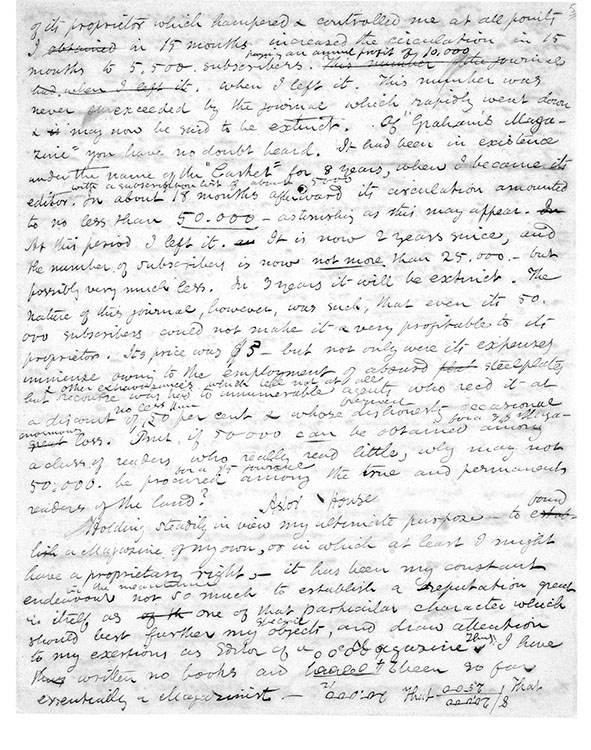 5
of its proprietor which hampered & controlled me at all points
I obtained in 15 months increased the circulation in 15
having an annual profit of 10,000
months to 5,500 subscribers. This number the journal
had when I left it. when I left it. This number was
never exceeded by the journal which rapidly went down
& is may now be said to be extinct. Of "Graham's Maga-
zine" you have no doubt heard. It had been in existence
under the name of the "Casket" for 8 years, when I became its
with a subscription list of about 5000
editor. In about 18 months afterward its circulation amounted
to no less than 50.000 — astonishing as this may appear. In
At this period I left it. It is now 2 years since, and
the number of subscribers is now not more than 25.000. — but
possibly very much less. In 3 years it will be extinct. The
nature of this journal, however, was such, that even its 50.
000 subscribers could not make it very profitable to its
proprietors. Its price was $3 — but not only were its expenses
immense owing to the employment of absurd steelplates
& other extravagances which tell not at all
but recourse was had to innumerable agents who recd it at
no less than frequent
a discount of 50 per cent & whose dishonesty occasional
enormous for a 3$ Maga-
great loss. But, if 50 000 can be obtained among
a class of readers who really read little, why may not
for a $5 journal
50,000. be procured among the true and permanent
readers of the land?
Astor House
Holding steadily in view my ultimate purpose — to found
estab-
lish a Magazine of my own, or in which at least I might
have a proprietary right, — it has been my constant
in the meantime
endeavour not so much to establish a reputation great
in itself as of th one of that particular character which
special
should best further my objects, and draw attention
to my exertions as Editor of a Magazine. Thus I have
thus written no books and been so far
essentially a Magazinist. — 20.000 That That